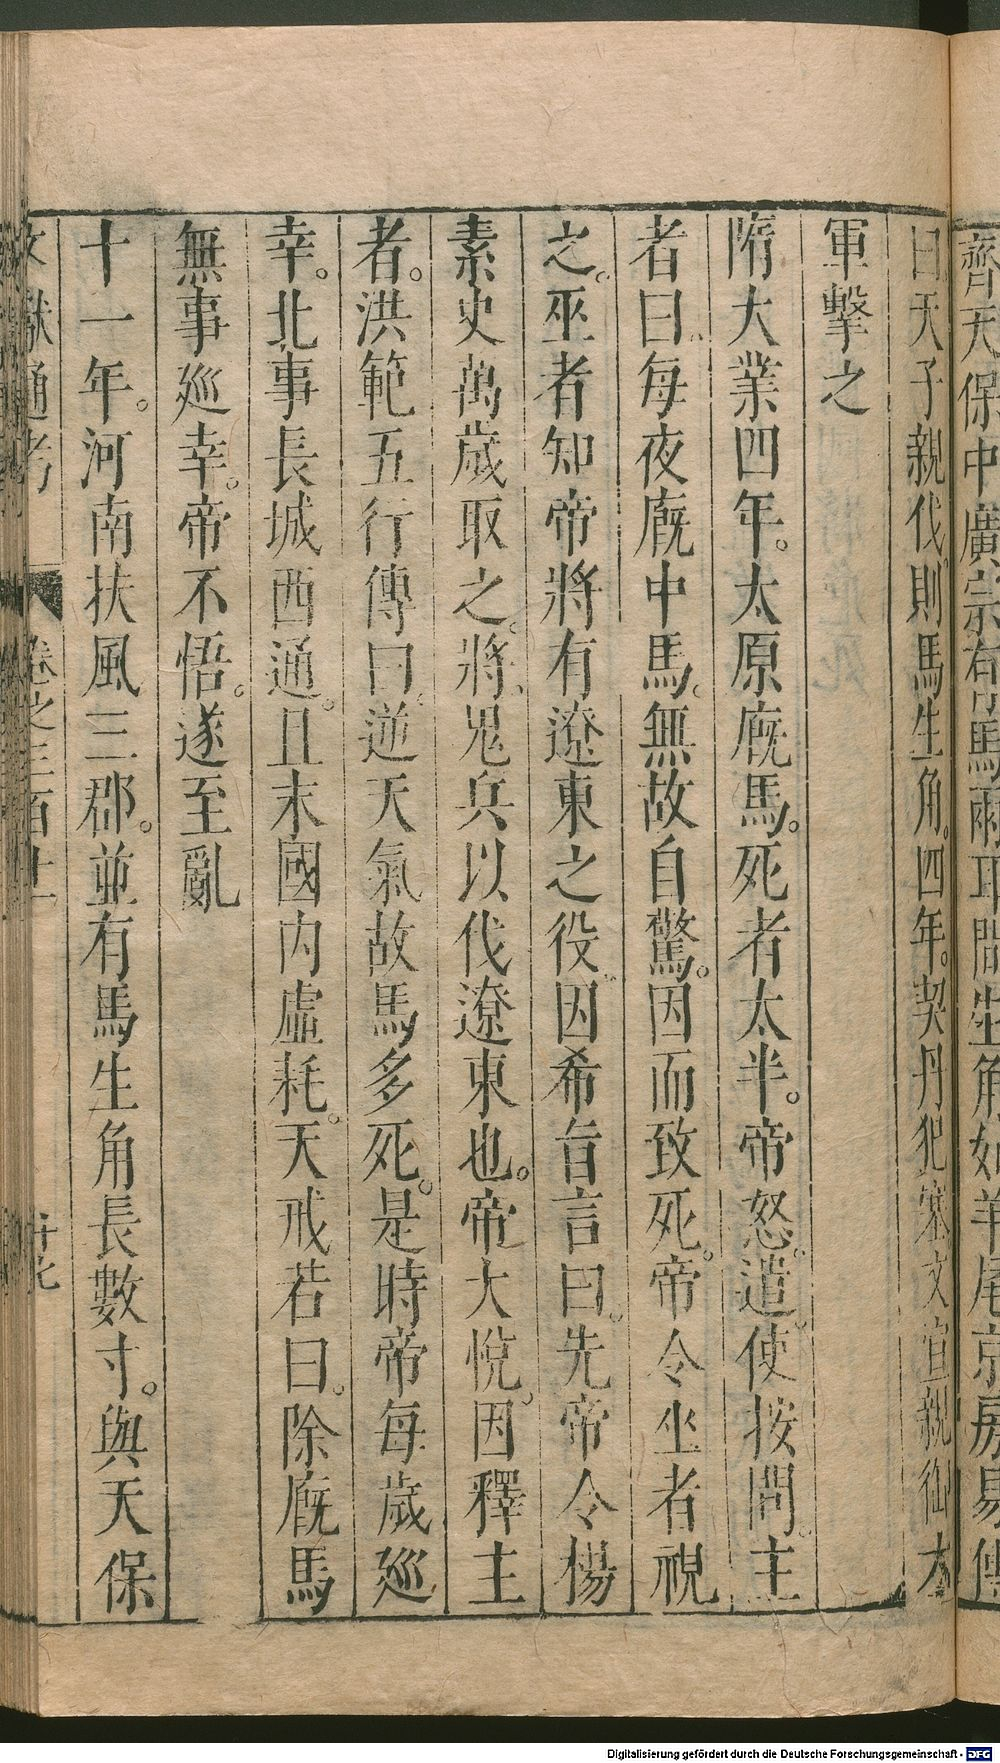 齊天保中廣宗有馬兩耳間生角如羊尾京房易傳
曰天子親伐則馬生角。四年。契丹犯塞文宣親御大
軍擊之
隋大業四年。太原廐馬。死者太半。帝怒。遣使按問。主
者曰。每夜廐中馬。無故自驚。因而致死。帝令巫者視
之。巫者知帝將有遼東之役。因希旨言曰。先帝令楊
素史萬歲取之。將鬼兵以伐遼東也。帝大悅。因釋主
者。洪範五行傳曰。逆天氣故馬多死。是時帝每歲巡
幸。北事長城西通。且末國內虛耗。天戒若曰。除廐馬
無事巡幸。帝不悟。遂至亂
十一年。河南扶風三郡。並有馬生角長數寸。與天保
文獻通考 卷之三百十一
Digitalisierung gefördert durch die Deutsche Forschungsgemeinschaft - DFG